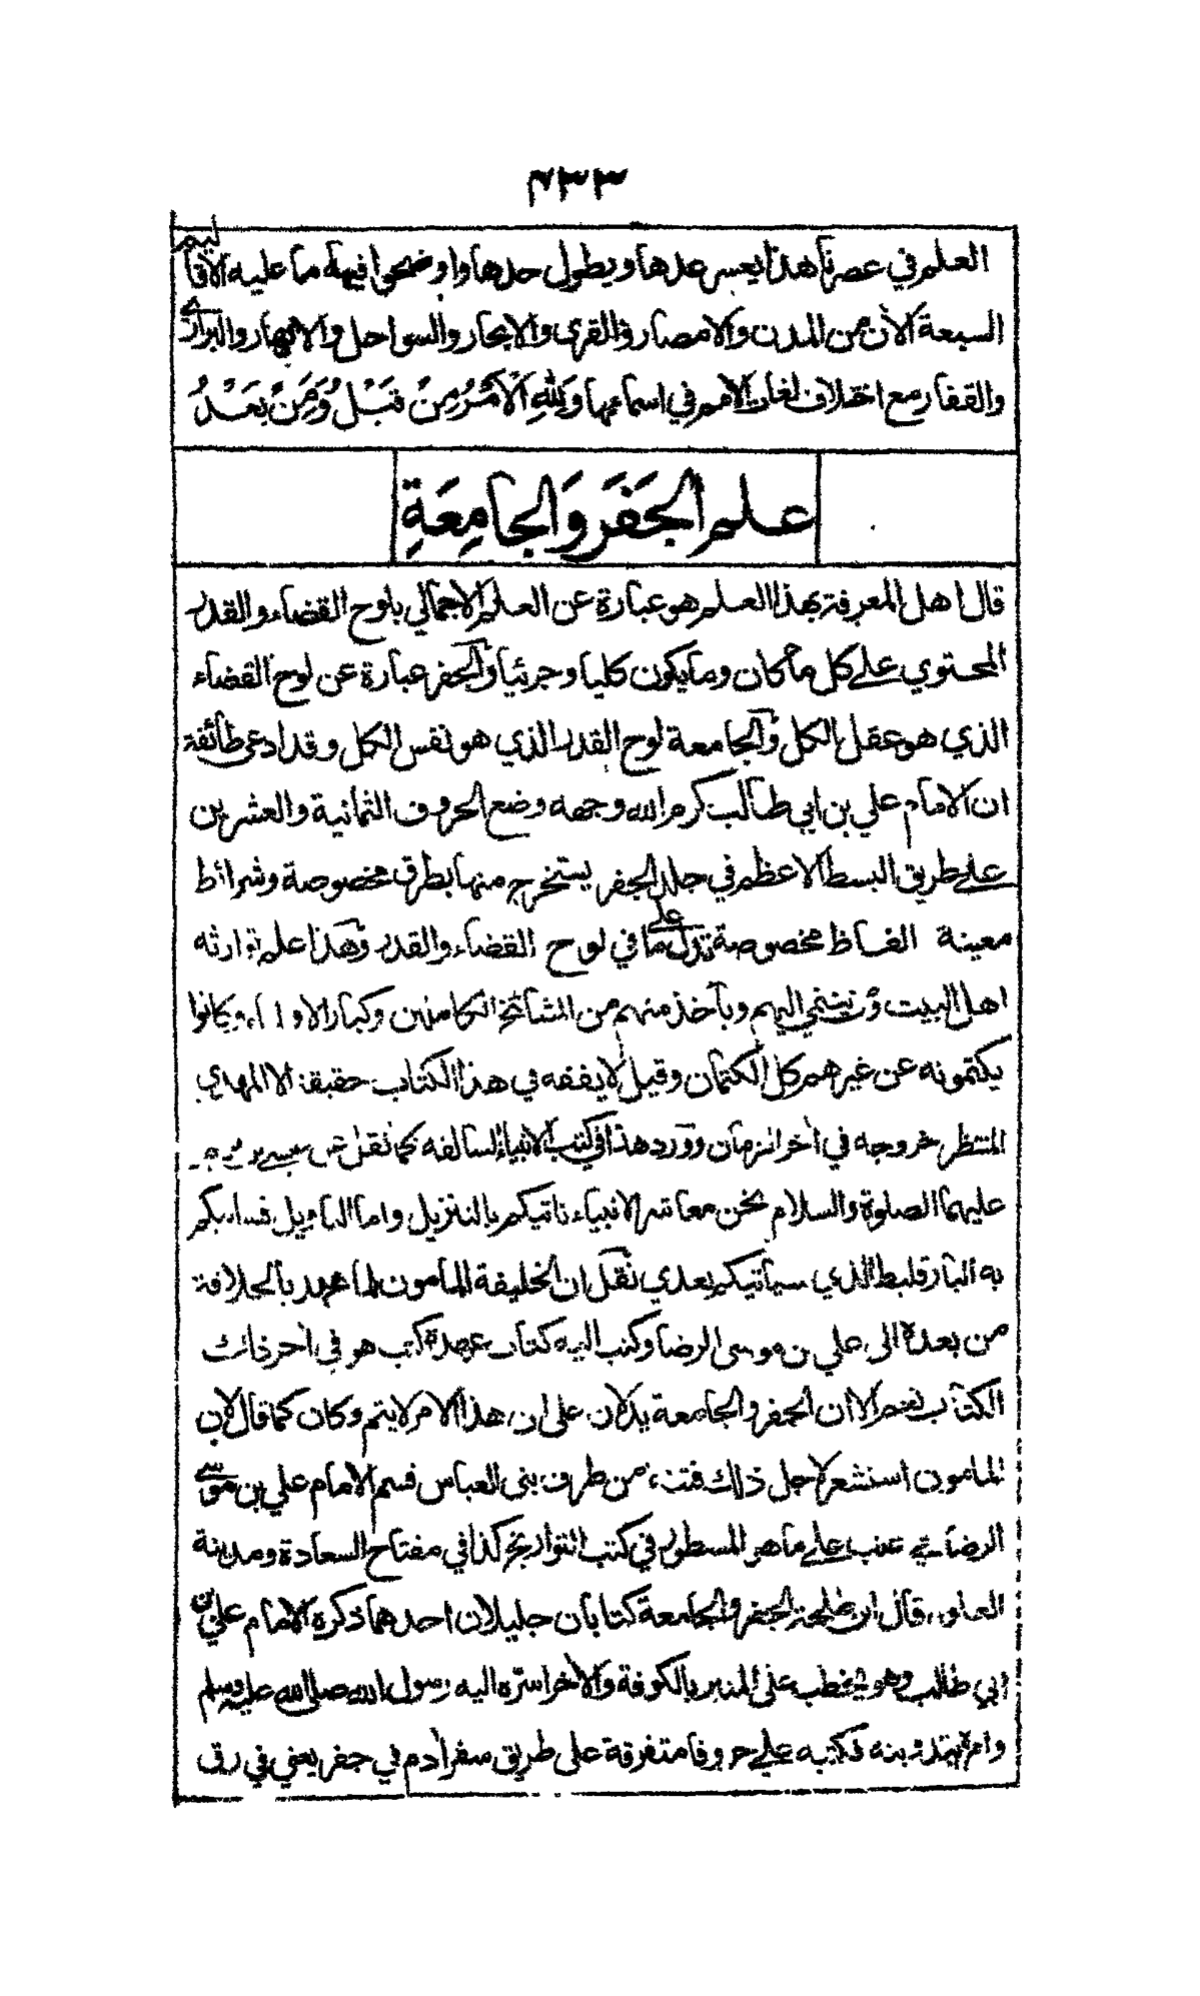 ٤٣٣
العلم في عصرنا هذا يعسر عدها ويطول حدها واوضحوا فيها ما عليه الاقاليم
السبعة الآن من المدن والامصار والقرى والابحار والسواحل والانهار والبراري
والقفار مع اختلاف لغات الامم في اسمائها وَلِلّهِ الْاَمْرُ مِنْ قَبْلُ وَمِنْ بَعْدُ
علم الجَفَر وَالجامِعَةِ
قال اهل المعرفة بهذا العلم هو عبارة عن العلم الاجمالي بلوح القضاء والقدر
المحتوي على كل ما كان وما يكون كليا وجزئيا والجفر عبارة عن لوح القضاء
الذي هو عقل الكل والجامعة لوح القدر الذي هو نفس الكل وقد ادعى طائفة
ان الامام علي بن ابي طالب كرم الله وجهه وضع الحروف الثمانية والعشرين
على طريق البسط الاعظم في جلد الجفر يستخرج منها بطرق مخصوصة وشرائط
معينة الفاظ مخصوصة تدل على ما في لوح القضاء والقدر وهذا علم توارثه
اهل البيت ومن ينتمي اليهم وياخذ منهم من المشائخ الكاملين وكبار الاولياء وكانوا
يكتمونه عن غيرهم كل الكتمان وقيل لا يفقه في هذا الكتاب حقيقة الا المهدي
المنتظر خروجه في آخر الزمان وورد هذا في كتب الانبياء السالفه كما نقل عن عيسى بن مريم
عليهما الصلوة والسلام نحن معاشر الانبياء ناتيكم بالتنزيل واما التاويل فسياتيكم
به البارقليط الذي سياتيكم بعدي نقل ان الخليفة المامون لما عهد بالخلافة
من بعده الى علي بن موسى الرضا وكتب اليه كتاب عهده كتب هو في آخر ذلك
الكتاب نعم الا ان الجفر والجامعة يدلان على ان هذا الامر لا يتم وكان كما قال لان
المامون استشعر لاجل ذلك فتنة من طرف بني العباس فسم الامام علي بن موسى
الرضا في عنب على ما هو المسطور في كتب التواريخ كذا في مفتاح السعادة ومدينة
العلوم قال ابن طلحة الجفر والجامعة كتابان جليلان احدهما ذكره الامام علي بن
ابي طالب وهو يخطب على المنبر بالكوفة والآخر اسرّه اليه رسول الله صلى الله عليه وسلم
وامره بتدوينه فكتبه علي حروفا متفرقة على طريق سفر آدم في جفر يعني في رق